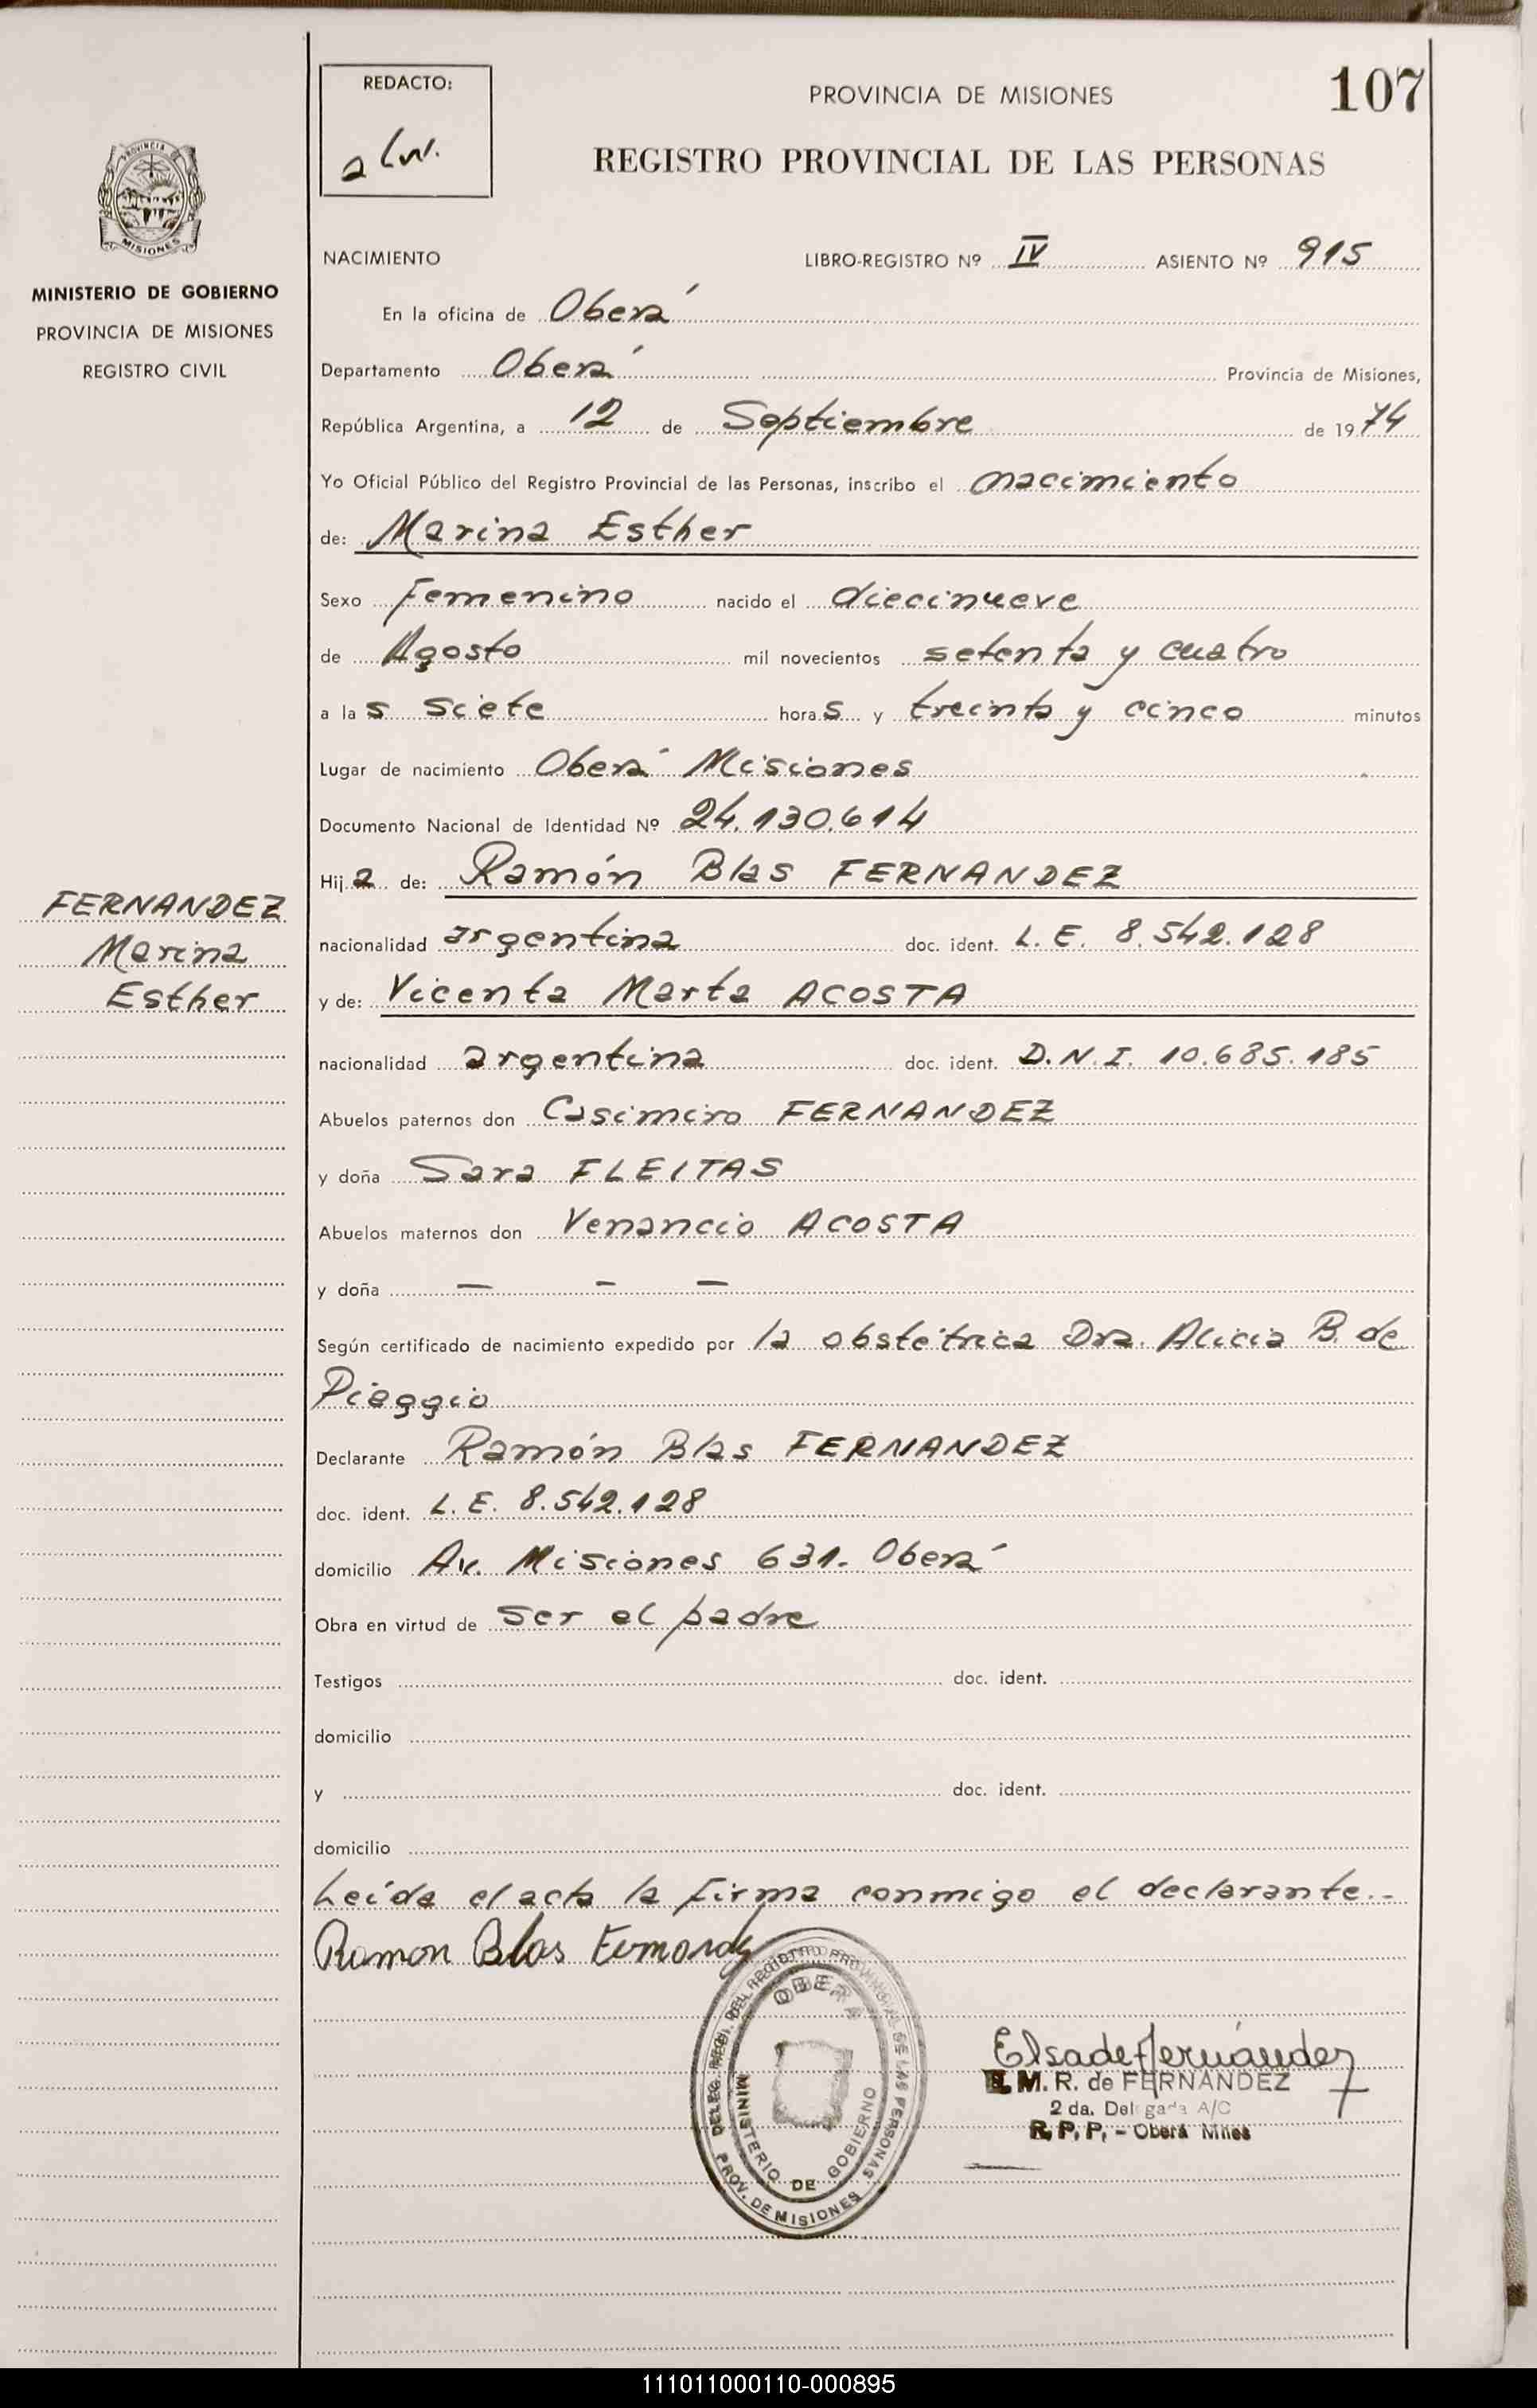 REDACTO:
PROVINCIA DE MISIONES
107
REGISTRO PROVINCIAL DE LAS PERSONAS
PROVINCIA
MISIONES
MINISTERIO DE GOBIERNO
PROVINCIA DE MISIONES
REGISTRO CIVIL
NACIMIENTO LIBRO-REGISTRO Nº IV ASIENTO Nº 915
En la oficina de Oberá
Departamento Oberá Provincia de Misiones,
República Argentina, a 12 de Septiembre de 1974
Yo Oficial Público del Registro Provincial de las Personas, inscribo el nacimiento
de: Marina Esther
Sexo Femenino nacido el diecinueve
de Agosto mil novecientos setenta y cuatro
a las siete horas y treinta y cinco minutos
Lugar de nacimiento Oberá Misiones
Documento Nacional de Identidad Nº 24.130.614
Hija de: Ramón Blas FERNANDEZ
FERNANDEZ
Marina
Esther
nacionalidad argentina doc. ident. L. E. 8.542.128
y de: Vicenta Marta ACOSTA
nacionalidad argentina doc. ident. D.N.I. 10.685.185
Abuelos paternos don Casimiro FERNANDEZ
y doña Sara FLEITAS
Abuelos maternos don Venancio ACOSTA
y doña — - —
Según certificado de nacimiento expedido por la obstétrica Dra. Alicia B. de
Pieggio
Declarante Ramón Blas FERNANDEZ
doc. ident. L. E. 8.542.128
domicilio Av. Misiones 631. Oberá
Obra en virtud de ser el padre
Testigos doc. ident.
domicilio
y doc. ident.
domicilio
Leída el acta la firma conmigo el declarante.-
Ramon Blas Fernandez
DELEG. REGI. DEL REGISTRO PROVINCIAL DE LAS PERSONAS
OBERA
MINISTERIO DE GOBIERNO
PROV. DE MISIONES
Elsa de Fernández
E. M. R. de FERNANDEZ
2 da. Delegada A/C
R. P. P. - Oberá Mnes
111011000110-000895